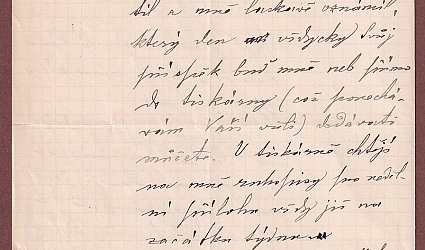 til a mně laskavě oznámil,
který den vždycky Svůj
příspěk buď mně neb přímo
do tiskárny (což ponechá-
vám Vaší vůli) dodávati
můžete. V tiskárně chtějí
na mně rukopisy pro neděl-
ní přílohu vždy již na
začátku týdne